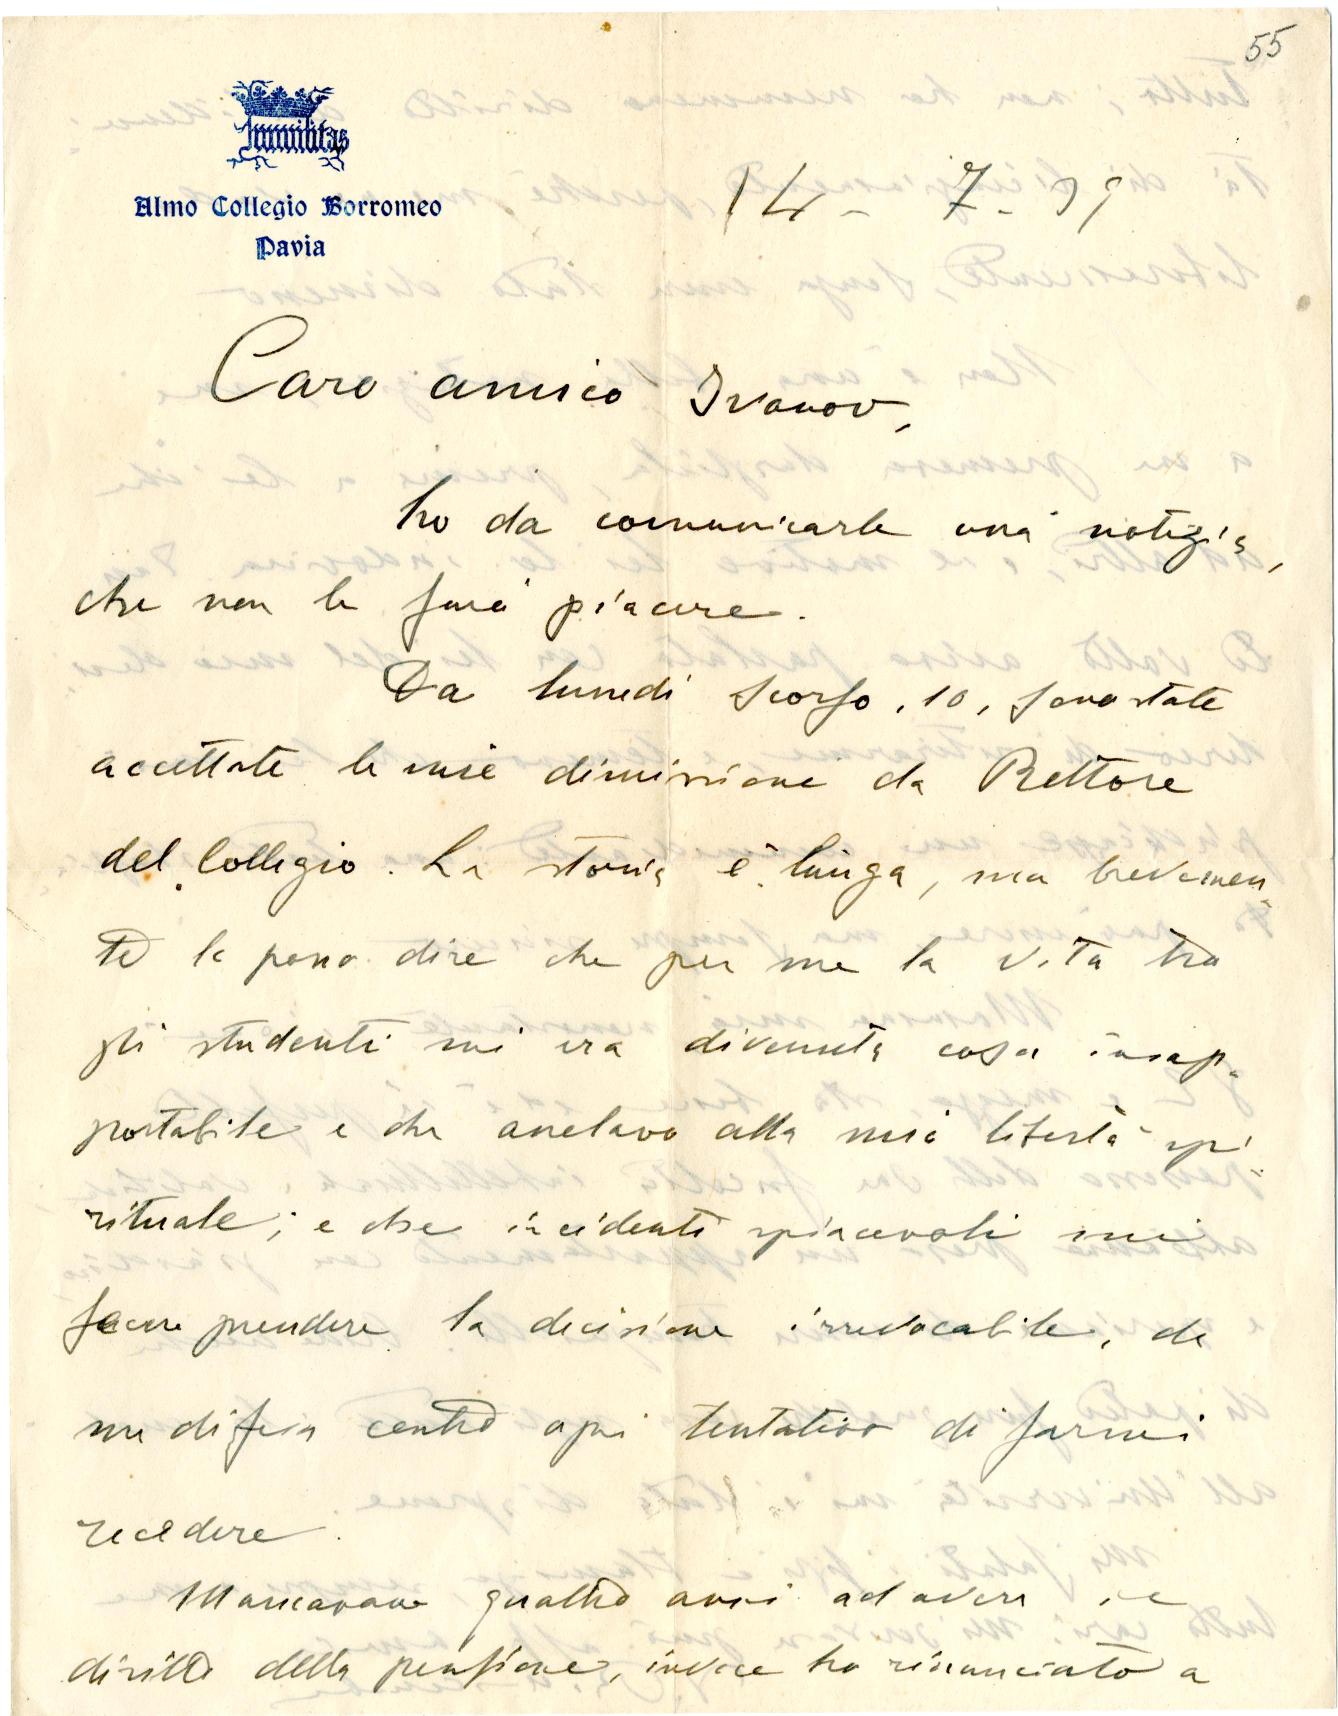 55
Humilitas
Almo Collegio Borromeo
Pavia
14 - 7 - 39
Caro amico Ivanov,
ho da comunicarle una notizia,
che non le farà piacere.
Da lunedì scorso, 10, sono state
accettate le mie dimissioni da Rettore
del Collegio. La storia è lunga, ma brevemen-
te le posso dire che per me la vita tra
gli studenti mi era divenuta cosa insop-
portabile e che anelavo alla mia libertà spi-
rituale; e che incidenti spiacevoli mi
fecero prendere la decisione irrevocabile, da
me difesa contro ogni tentativo di farmi
recedere.
Mancavano quattro anni ad avere il
diritto della pensione, invece ho rinunciato a